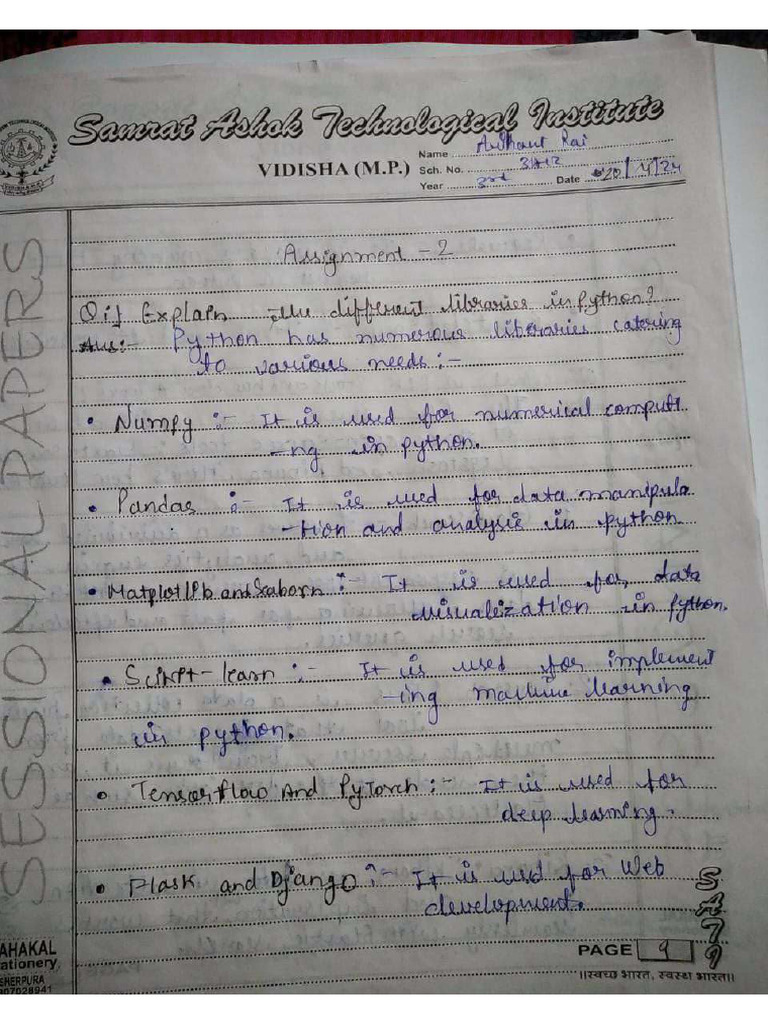 Samrat Ashok Technological Institute
VIDISHA (M.P.)
Name Rai
Sch. No.
Year 3rd Date 20/4/24
SESSIONAL PAPERS
Assignment - 2
Q.1 Explain the different libraries in python?
Ans:- Python has numerous libraries catering
to various needs:-
• Numpy :- It is used for numerical computi
-ng in python.
• Pandas :- It is used for data manipula
-tion and analysis in python
• Matplotlib and Seaborn :- It is used for data
visualization in python.
• Scikit-learn :- It is used for implement
-ing machine learning
in python.
• TensorFlow And PyTorch :- It is used for
deep learning.
• Flask and Django :- It is used for Web
development.
SATI
PAGE 9
॥स्वच्छ भारत, स्वस्थ भारत॥
AHAKAL
ationery
SHERPURA
907028941